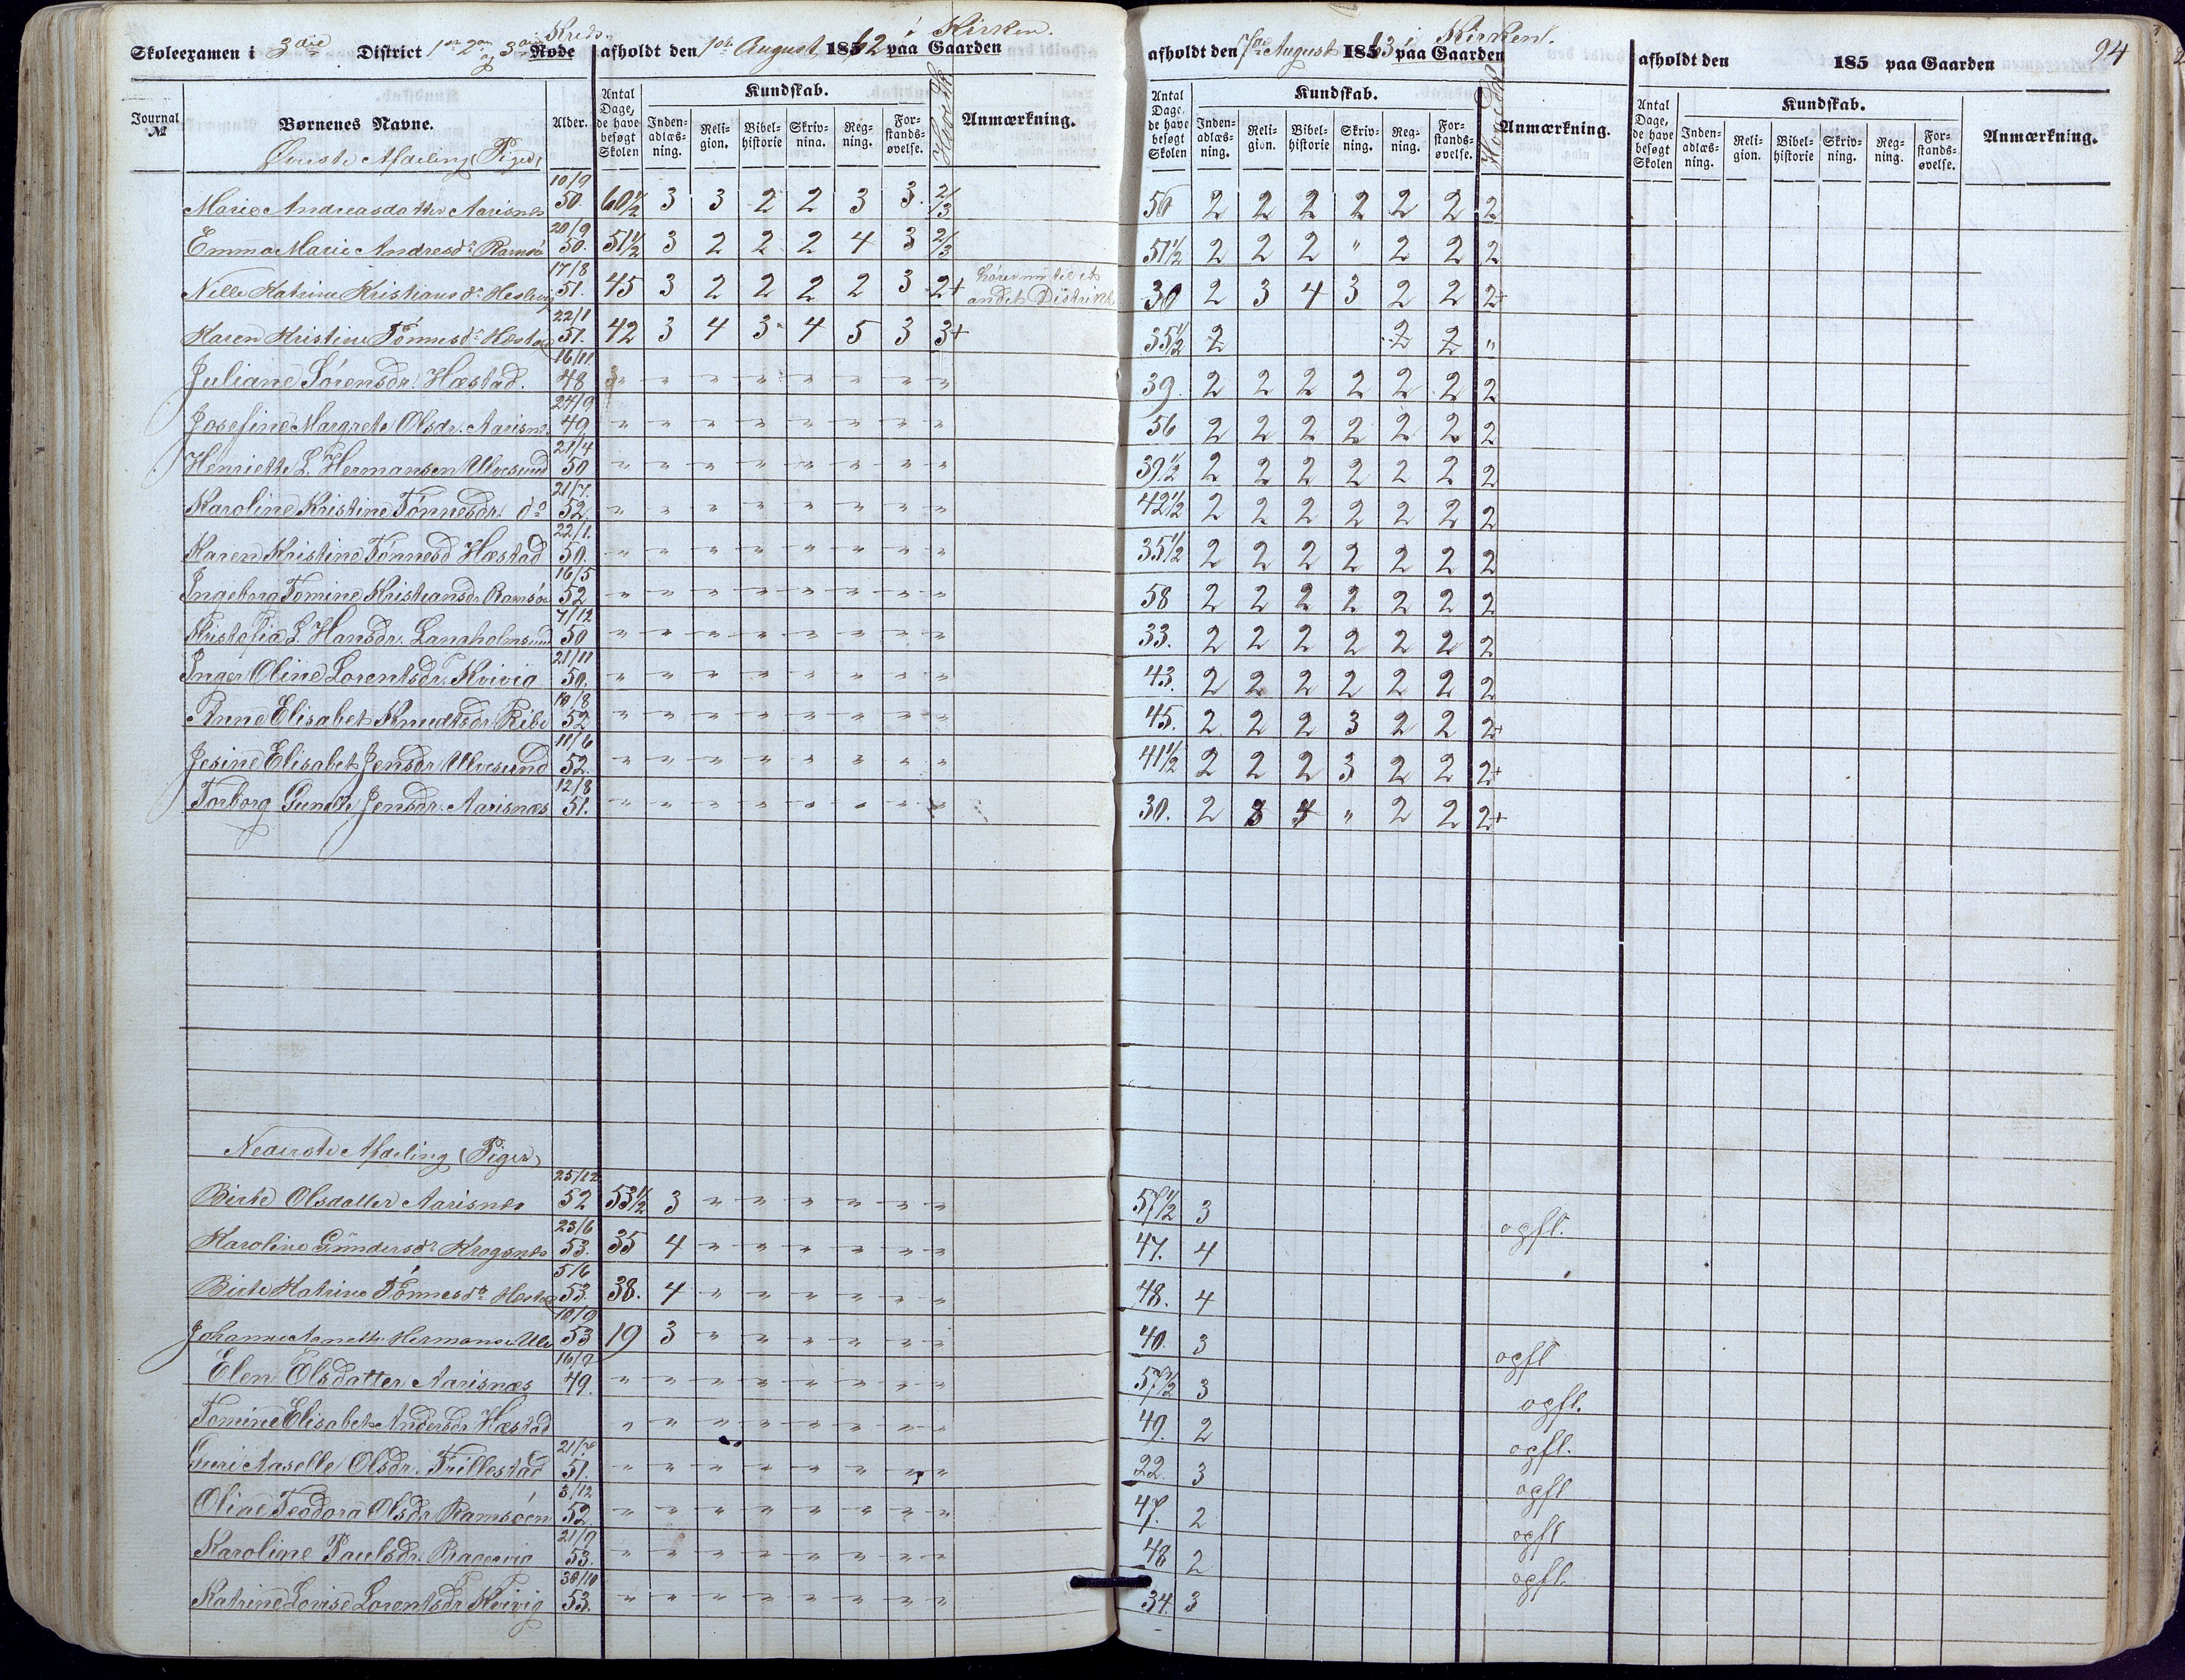 Kreds.
Skoleexamen i 3die District 1ste 2den og 3die Rode afholdt den 1ste August 1862 i Kirken. paa Gaarden
afholdt den 7de August 1863 i Kirken. paa Gaarden
afholdt den 185 paa Gaarden
94
Journal № Børnenes Navne. Alder. Antal Dage, de have besøgt Skolen Kundskab. Inden-adlæs-ning. Reli-gion. Bibel-historie Skriv-ning. Reg-ning. For-stands-øvelse. Anmærkning.
Antal Dage, de have besøgt Skolen Kundskab. Inden-adlæs-ning. Reli-gion. Bibel-historie Skriv-ning. Reg-ning. For-stands-øvelse. Anmærkning.
Antal Dage, de have besøgt Skolen Kundskab. Inden-adlæs-ning. Reli-gion. Bibel-historie Skriv-ning. Reg-ning. For-stands-øvelse. Anmærkning.
Øverste Afdeling (Piger)
Marie Andreasdatter Aarisnes 10/9 50. 60 1/2 3 3 2 2 3 3. 2/3 56 2 2 2 2 2 2 2
Emma Marie Andresdr Ramsø 20/9 50. 51 1/2 3 2 2 2 4 3 2/3 51 1/2 2 2 2 " 2 2 2
Nille Katrine Kristiansdr 17/8 51. 45 3 2 2 2 2 3 2+ hører nu til et andet Distrikt 30 2 3 4 3 2 2 2+
Karen Kristine Tønnesdr Hestad 22/1 51. 42 3 4 3 4 5 3 3+ 35 1/2 2 2 2 "
Juliane Sørensdr. Hæstad. 16/11 48 " " " " " " " " 39. 2 2 2 2 2 2 2
Josefine Margrete Olsdr. Aarisnes 24/9 49 " " " " " " " " 56 2 2 2 2 2 2 2
Henriette L. Hermansen Ulvesund 21/4 50 " " " " " " " " 39 1/2 2 2 2 2 2 2 2
Karoline Kristine Tønnesdr. do 21/7. 52 " " " " " " " " 42 1/2 2 2 2 2 2 2 2
Karen Kristine Tønnesd Hæstad 22/1. 50. " " " " " " " " 35 1/2 2 2 2 2 2 2 2
Ingeborg Tomine Kristiansdr Ramsøe 16/5 52 " " " " " " " " 58 2 2 2 2 2 2 2
Kristofia L. Hansdr. Lamholmsund 7/12 50 " " " " " " " " 33. 2 2 2 2 2 2 2
Inger Oline Lorentsdr. Kvivig 21/11 50. " " " " " " " " 43. 2 2 2 2 2 2 2
Anne Elisabet Knudtsdr Ribe 10/8 52 " " " " " " " " 45. 2 2 2 3 2 2 2+
Jesine Elisabet Jensdr Ulvesund 11/6 52. " " " " " " " " 41 1/2 2 2 2 3 2 2 2+
Torborg Gunille Jensdr. Aarisnæs 12/8 51. " " " " " " " " 30. 2 3 4 " 2 2 2+
Nederste Afdeling (Piger)
Birte Olsdatter Aarisnes 25/12 52 53 1/2 3 " " " " " " 57 1/2 3 opfl.
Karoline Gundersdr Krogsnes 23/6 53. 35 4 " " " " " " 47. 4
Birte Katrine Tønnesdr Hestad 5/6 53. 38. 4 " " " " " " 48. 4
Johanne Anette Hermans. Ulv 10/9 53 19 3 " " " " " " 40. 3 opfl
Elen Olsdatter Aarisnæs 16/7 49. " " " " " " " " 57 1/2 3 opfl.
Tomine Elisabet Andersdr Hæstad " " " " " " " " 49. 2 opfl.
Guri Aaselle Olsdr. Trillestad 21/7 51. " " " " " " " " 22. 3 opfl
Oline Teodora Olsdr. Ramsøen 3/12 52. " " " " " " " " 47. 2 opfl
Karoline Paulsdr. Bragevig 21/9 53. " " " " " " " " 48 2 opfl.
Katrine Lovise Lorentsdr Kvivig 30/10 53. " " " " " " " " 34. 3